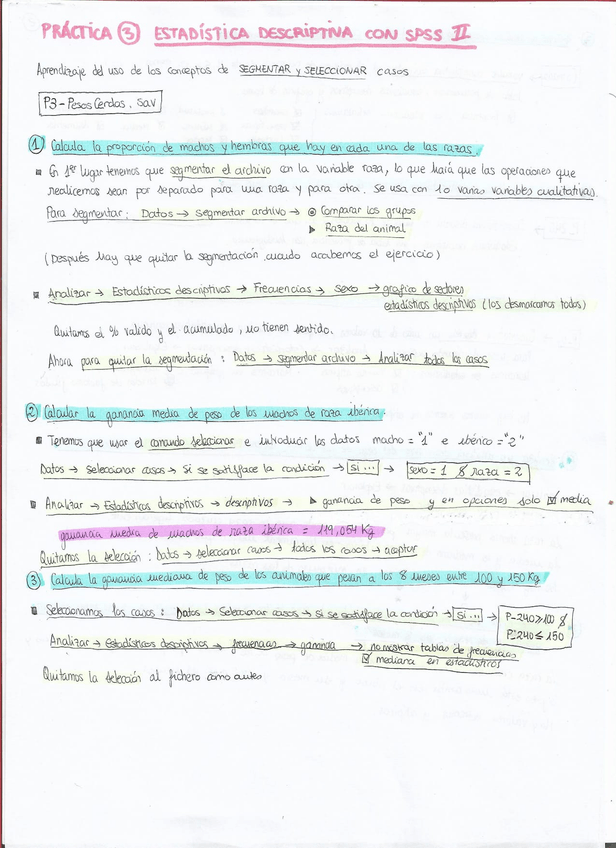 PRÁCTICA 3 ESTADÍSTICA DESCRIPTIVA CON SPSS II
Aprendizaje del uso de los conceptos de SEGMENTAR y SELECCIONAR casos
P3-PesosCerdos.sav
1 Calcula la proporción de machos y hembras que hay en cada una de las razas.
En 1er lugar tenemos que segmentar el archivo con la variable raza, lo que hará que las operaciones que
realicemos sean por separado para una raza y para otra. Se usa con 1 o varias variables cualitativas.
Para segmentar: Datos → segmentar archivo → Comparar los grupos
Raza del animal
(Después hay que quitar la segmentación cuando acabemos el ejercicio)
Analizar → Estadísticos descriptivos → Frecuencias → sexo → grafico de sectores
estadísticos descriptivos (los desmarcamos todos)
Quitamos el % valido y el acumulado, no tienen sentido.
Ahora para quitar la segmentación: Datos → segmentar archivo → Analizar todos los casos
2 Calcular la ganancia media de peso de los machos de raza ibérica.
Tenemos que usar el comando seleccionar e introducir los datos macho = "1" e ibérico = "2"
Datos → Seleccionar casos → Si se satisface la condición → si ... → sexo = 1 & raza = 2
Analizar → Estadísticos descriptivos → descriptivos → ganancia de peso y en opciones solo media
ganancia media de machos de raza ibérica = 119,054 Kg
Quitamos la selección: Datos → seleccionar casos → todos los casos → aceptar
3 Calcula la ganancia mediana de peso de los animales que pesan a los 8 meses entre 100 y 150 Kg
Seleccionamos los casos: Datos → Seleccionar casos → Si se satisface la condición → si ... → P-240 ≥ 100 &
P-240 ≤ 150
Analizar → Estadísticos descriptivos → frecuencias → ganancia → no mostrar tablas de frecuencias
mediana en estadísticos
Quitamos la selección al fichero como antes